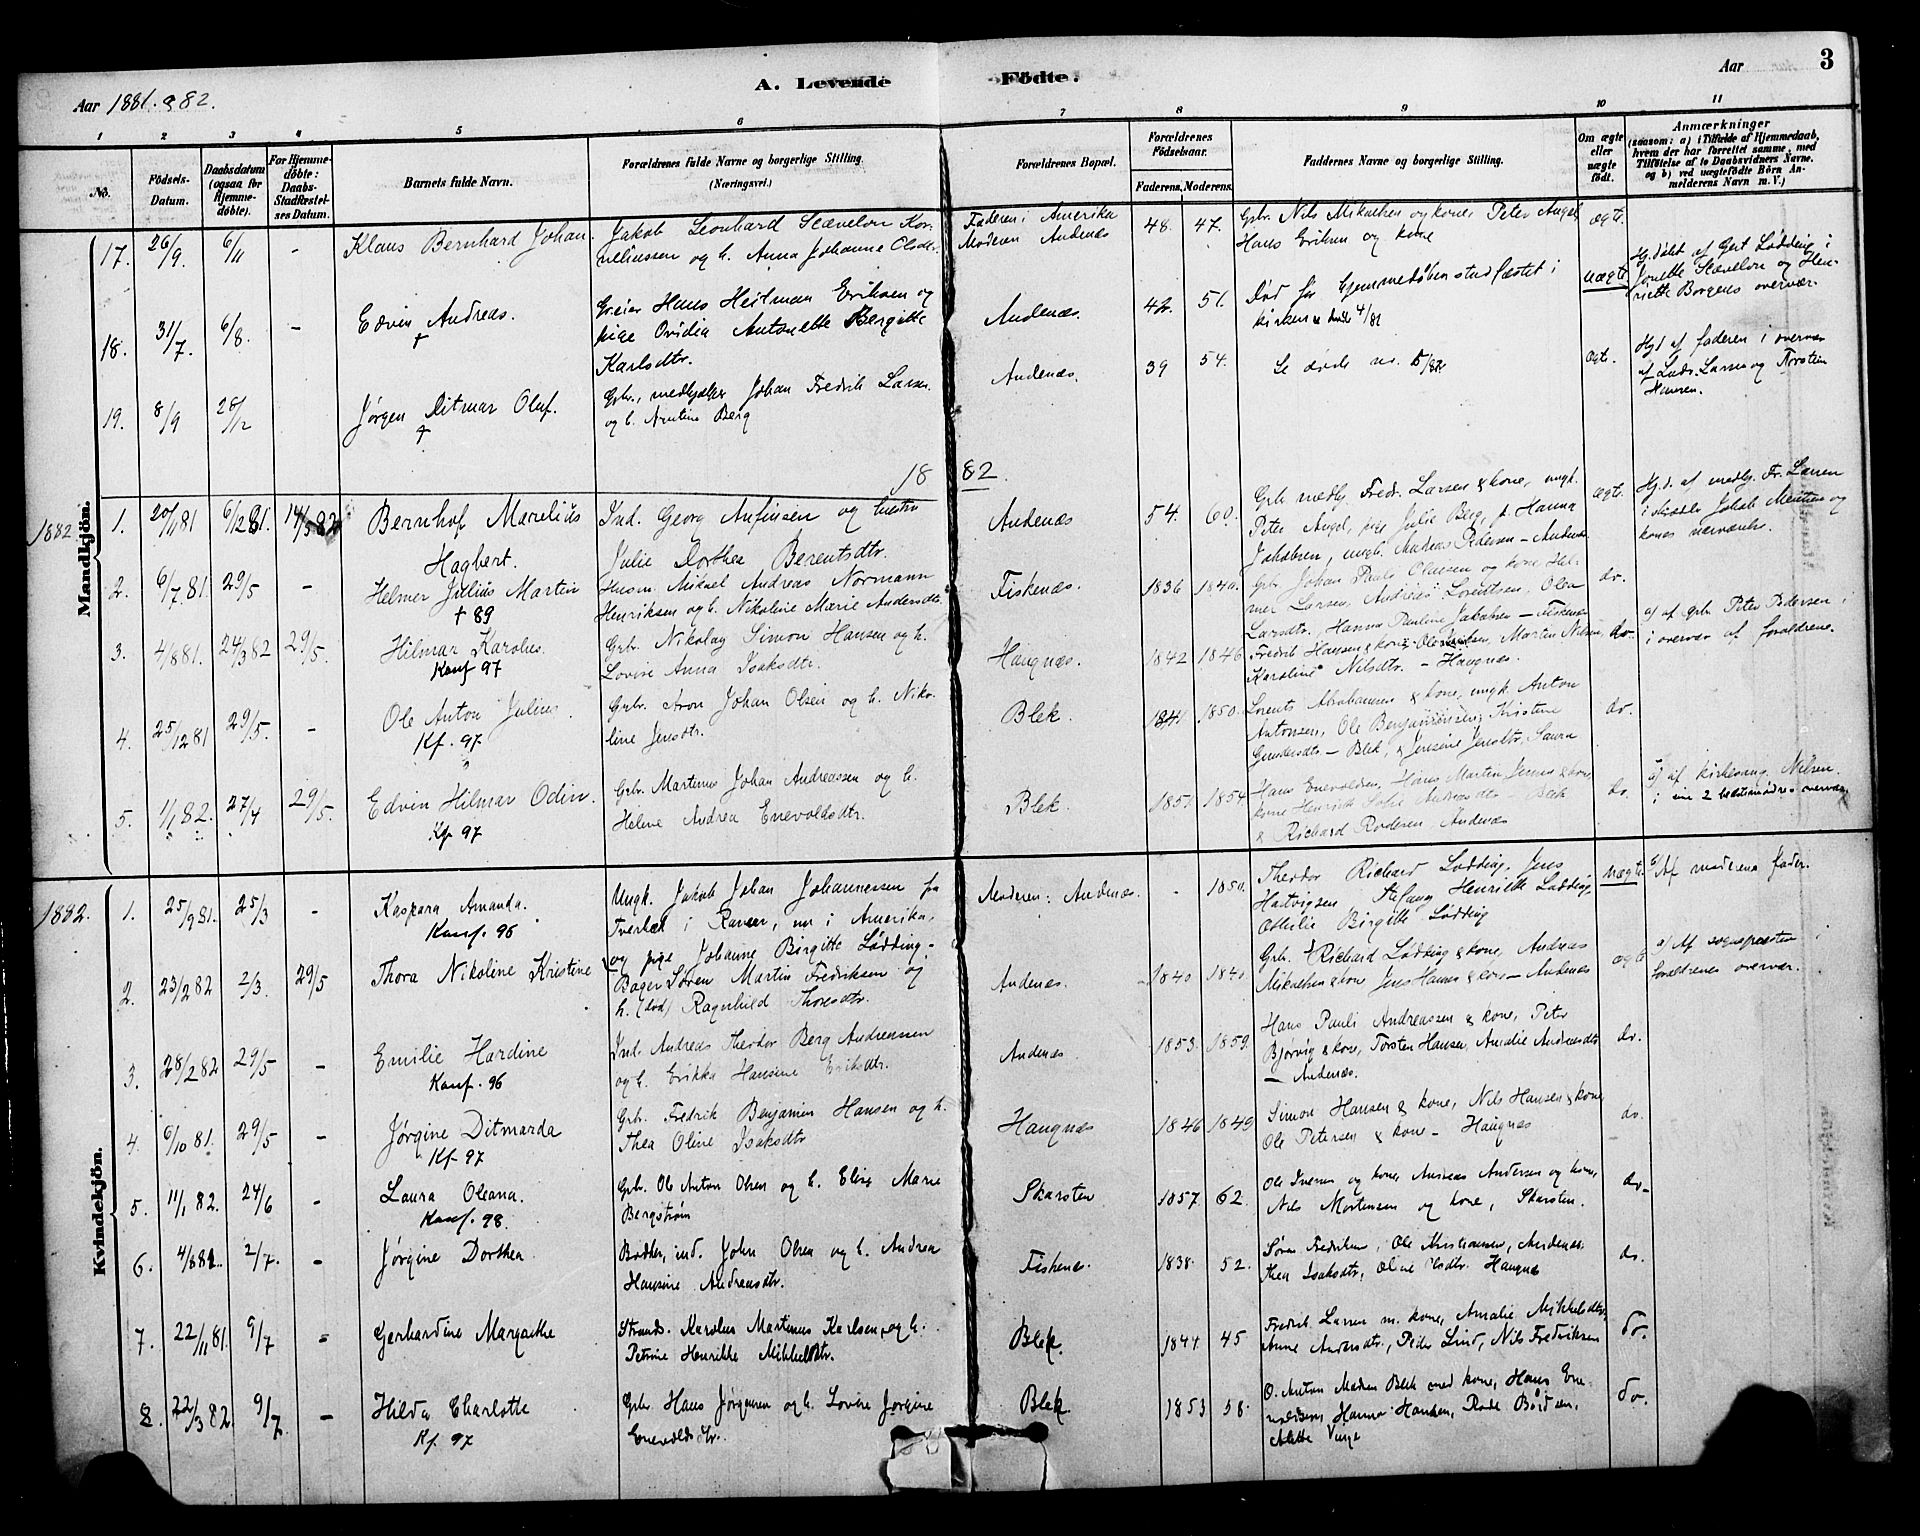 Aar 1881. & 82.
A. Levende Födte.
Aar
3
1 2 3 4 5 6 7 8 9 10 11
No.
Födsels-Datum.
Daabsdatum (ogsaa for Hjemme-døbte).
For Hjemme-døbte: Daabs-Stadfæstelses Datum.
Barnets fulde Navn.
Forældrenes fulde Navne og borgerlige Stilling. (Næringsvei.)
Forældrenes Bopæl.
Forældrenes Födselsaar.
Faderens. Moderens.
Faddernes Navne og borgerlige Stilling.
Om ægte eller uægte født.
Anmærkninger
(saasom: a) i Tilfælde af Hjemmedaab, hvem der har forrettet samme, med Tilføielse af to Daabsvidners Navne. og b) ved uægtefødte Børn Anmelderens Navn m. V.)
Mandkjön.
17. 26/9. 6/11 - Klaus Bernhard Johan.
Jakob Leonhard Scævelon Korneliussen og h. Anna Johanne Olsdtr
Faderen i Amerika
Moderen Andenæs
48. 47.
Grb. Nils Mikalsen og kone, Peter Angel
Hans Eriksen og kone
ægt.
18. 31/7. 6/8. - Edvin Andreas.
†
Hans Heilman Eriksen og
pige Ovidia Antonette Bergitte
Karlsdtr.
Andenæs. 42. 51.
Død før hjemmedåben stadfæstet i
kirken
uægt
Hj.døbt af Gert Lødding i
Jonette Scævelon og Henriette Borgens overvær.
19. 8/9 28/12 Jørgen Ditmar Oluf.
†
Grb., medhjælper Johan Fredrik Larsen
og h. Antine Berg
Andenæs. 39 54.
Se døde no. 5/82
ægt.
Hjd af faderen i overvær
af Ludv. Larsen og Torsten
Hansen.
18 82.
1882. 1. 20/1 81 6/12 81. 14/5 82 Bernhof Marelius
Hagbert.
Ind. Georg Anfinsen og hustru
Julie Dorthea Berentsdtr.
Andenæs 54. 60.
Grb medhj. Fredr. Larsen & kone, ungk.
Peter Angel, pige Julie Berg, p. Hanna
Jakobsen, ungk. Andreas Pedersen - Andenæs
ægt.
Hj.d. af medhj. Fr. Larsen
Jakob Mentsen og
kones nærværelse.
2. 6/7.81. 29/5 - Helmer Julius Martin
† 89
Husm. Mikael Andreas Normann
Henriksen og h. Nikoline Marie Andersdtr.
Fiskenæs. 1836 1840.
Grb Johan Pauli Olausen og kone, Helmer Larsen, Andreas Lorentsen, Olea
Larsdtr., Hanna Pauline Jakobsen - Fiskenæs
do.
3. 4/8 81. 24/3 82 29/5. Hilmar Karolus.
Konf. 97
Grb. Nikolay Simon Hansen og h.
Lovise Anna Isaksdtr.
Haugnæs. 1842 1846
Fredrik Hansen & kone, Ole Nielsen, Morten Nilsen,
Karoline Nilsdtr. - Haugnæs.
do.
a) af Grb Peter Pedersen i
i overvær af forældrene.
4. 25/12 81 29/5. - Ole Anton Julius.
Kf. 97
Grb. Aron Johan Olsen og h. Nikoline Jensdtr.
Blek. 1841 1850.
Lorents Abrahamsen & kone, ungk. Anton
Antonsen, Ole Benjaminsen, Kristine
Gundersdtr - Blek, & Jensine Jensdtr, Saura
do.
5. 1/1 82. 27/4 29/5. Edvin Hilmar Odin.
Kf 97
Grb. Martinus Johan Andreassen og h.
Helene Andrea Enevoldsdtr.
Blek. 1851 1854
Hans Enevoldsen, Hans Martin Jensen & kone,
kone Henrik Sofie Andreasdtr - Blek
& Richard Rodersen Andenæs
do.
a) af kirkesang. Nielsen
i sine 2 bedstemødres overvær
Kvindekjön.
1882. 1. 25/9 81. 25/3 - Kaspara Amanda.
Konf. 96
Ungk. Jakob Johan Johannessen fra
Tverlæk i Ranen, nu i Amerika,
og pige Johanne Birgitte Lødding -
Moderen: Andenæs. - 1850.
Theodor Richard Lødding, Jens
Hartvigsen Stefang Henriette Lødding,
Othilie Birgitte Lødding
uægt.
b) Af moderens fader.
2. 23/2 82 2/3. 29/5 Thora Nikoline Kristine
Bager Søren Martin Fredriksen og
h. (død) Ragnhild Thoresdtr.
Andenæs. 1840 1840
Grb. Richard Lødding & kone, Andreas
Mikalsen & kone Jens Hansen & kone - Andenæs
ægt
a) Af sognepresten
forældrenes overvær.
3. 28/2 82 29/5 - Emilie Hardine
Konf. 96
Ind. Andreas Theodor Berg Andreassen
og h. Erikka Hansine Eriksdtr.
Andenæs 1853. 1859.
Hans Pauli Andreassen & kone, Peter
Bjørvig & kone, Torsten Hansen, Amalie Andreasdtr
- Andenæs.
do.
4. 6/10 81. 29/5 - Jørgine Ditmarda
Kf. 97
Grb. Fredrik Benjamin Hansen og h.
Thea Oline Isaksdtr
Haugnæs 1846 1849
Simon Hansen & kone, Nils Hansen & kone,
Ole Petersen & kone - Haugnæs
do.
5. 11/1 82. 24/6 - Laura Oleana.
Konf. 98.
Grb. Ole Anton Olsen og h. Elise Marie
Bergstrøm
Skarsten 1857. 62.
Ole Iversen og kone, Andreas Andersen og kone,
Nils Mortensen og kone, Skarsten.
do-
6. 4/8 82. 2/7. - Jørgine Dorthea
Bødker, ind. John Olsen og h. Andrea
Hansine Andreasdtr.
Fiskenæs. 1838. 52.
Søren Fredriksen, Ole Kristiansen, Andenæs.
Thea Isaksdtr, Oline Haugnæs
do.
7. 22/11 81. 9/7 - Gerhardine Margrethe
Strands. Karolus Martinus Karlsen, og h.
Petrine Henrikke Mikkelsdtr.
Blek. 1844 45
Fredrik Larsen m. kone, Amalie Mikkelsdtr,
Anne Andersdtr., Peder Lind, Nils Fredriksen
do.
8. 22/3 82. 9/7. - Hilda Charlotte
Kf. 97
Grb Hans Jørgensen og h. Lovise Jørgine
Enevoldsdtr.
Blek. 1853 58.
O. Anton Madsen Blek med kone, Hans Enevoldsen, Hanna Hansen,
do.